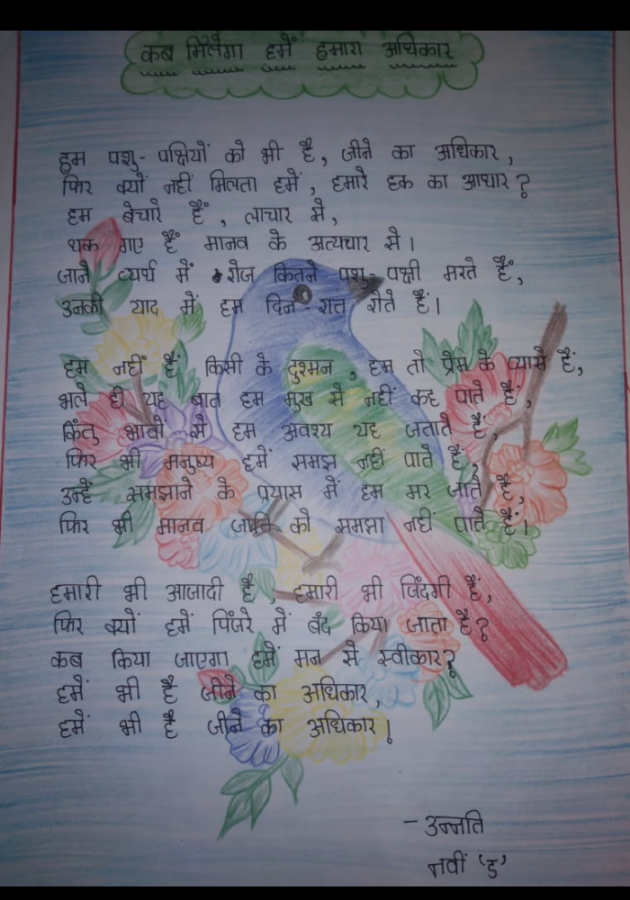 कब मिलेगा हमें हमारा अधिकार
हम पशु-पक्षियों को भी है, जीने का अधिकार,
फिर क्यों नहीं मिलता हमें, हमारे हक का आधार?
हम बेचारे हैं, लाचार से,
थक गए हैं मानव के अत्यचार से।
जाने व्यर्थ में रोज कितने पशु-पक्षी मरते हैं,
उनकी याद में हम दिन-रात रोते हैं।
हम नहीं हैं किसी के दुश्मन, हम तो प्रेम के प्यासे हैं,
भले ही यह बात हम मुख से नहीं कह पाते हैं,
किंतु भावों से हम अवश्य यह जताते हैं,
फिर भी मनुष्य हमें समझ नहीं पाते हैं,
उन्हें समझाने के प्रयास में हम मर जाते हैं,
फिर भी मानव जाति को समझा नहीं पाते हैं।
हमारी भी आजादी है, हमारी भी जिंदगी हैं,
फिर क्यों हमें पिंजरे में बंद किया जाता है?
कब किया जाएगा हमें मन से स्वीकार?
हमें भी है जीने का अधिकार,
हमें भी है जीने का अधिकार!
- उन्नति
नवीं 'ड'